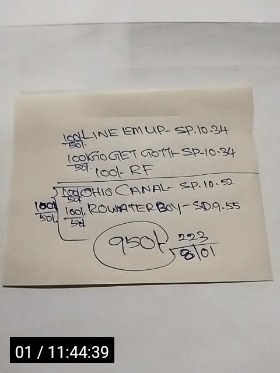 100/50 LINE EM UP- SP.10.34
100/50 GO GET GOTTI- SP-10-34
100/- RF
100/50 OHIO CANAL- SP.10.52
100/50 100/50 ROWATERBOY- SD.9.55
950/- 223
8/01
01 / 11:44:39